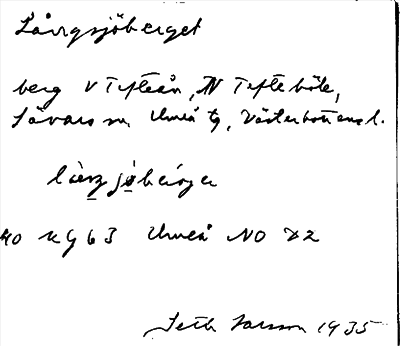 Långsjöberget
berg V Tefteån, N Tefteböle,
Sävars sn Umeå tg, Västerbottens l.
40 Kg 63 Umeå NO
Seth Larsson 1935